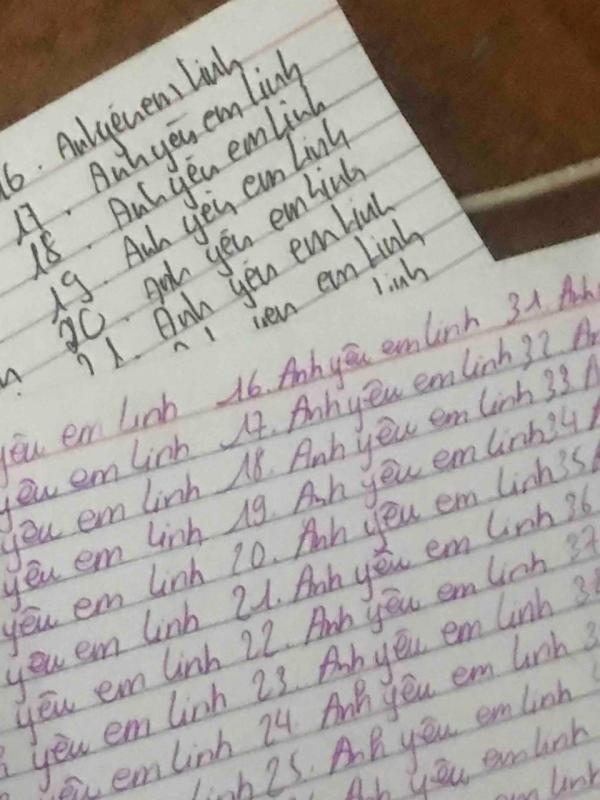 16. Anh yêu em Linh
17. Anh yêu em Linh
18. Anh yêu em Linh
19. Anh yêu em Linh
20. Anh yêu em Linh
21. Anh yêu em Linh
em Linh
Linh
yêu em Linh 16. Anh yêu em Linh 31. Anh
yêu em Linh 17. Anh yêu em Linh 32 An
yêu em Linh 18. Anh yêu em Linh 33 A
yêu em Linh 19. Anh yêu em Linh 34 A
yêu em Linh 20. Anh yêu em Linh 35
yêu em Linh 21. Anh yêu em Linh 36
yêu em Linh 22. Anh yêu em Linh 37
yêu em Linh 23. Anh yêu em Linh 38
yêu em Linh 24. Anh yêu em Linh
yêu em Linh 25. Anh yêu em Linh
Anh yêu em Linh
em Linh